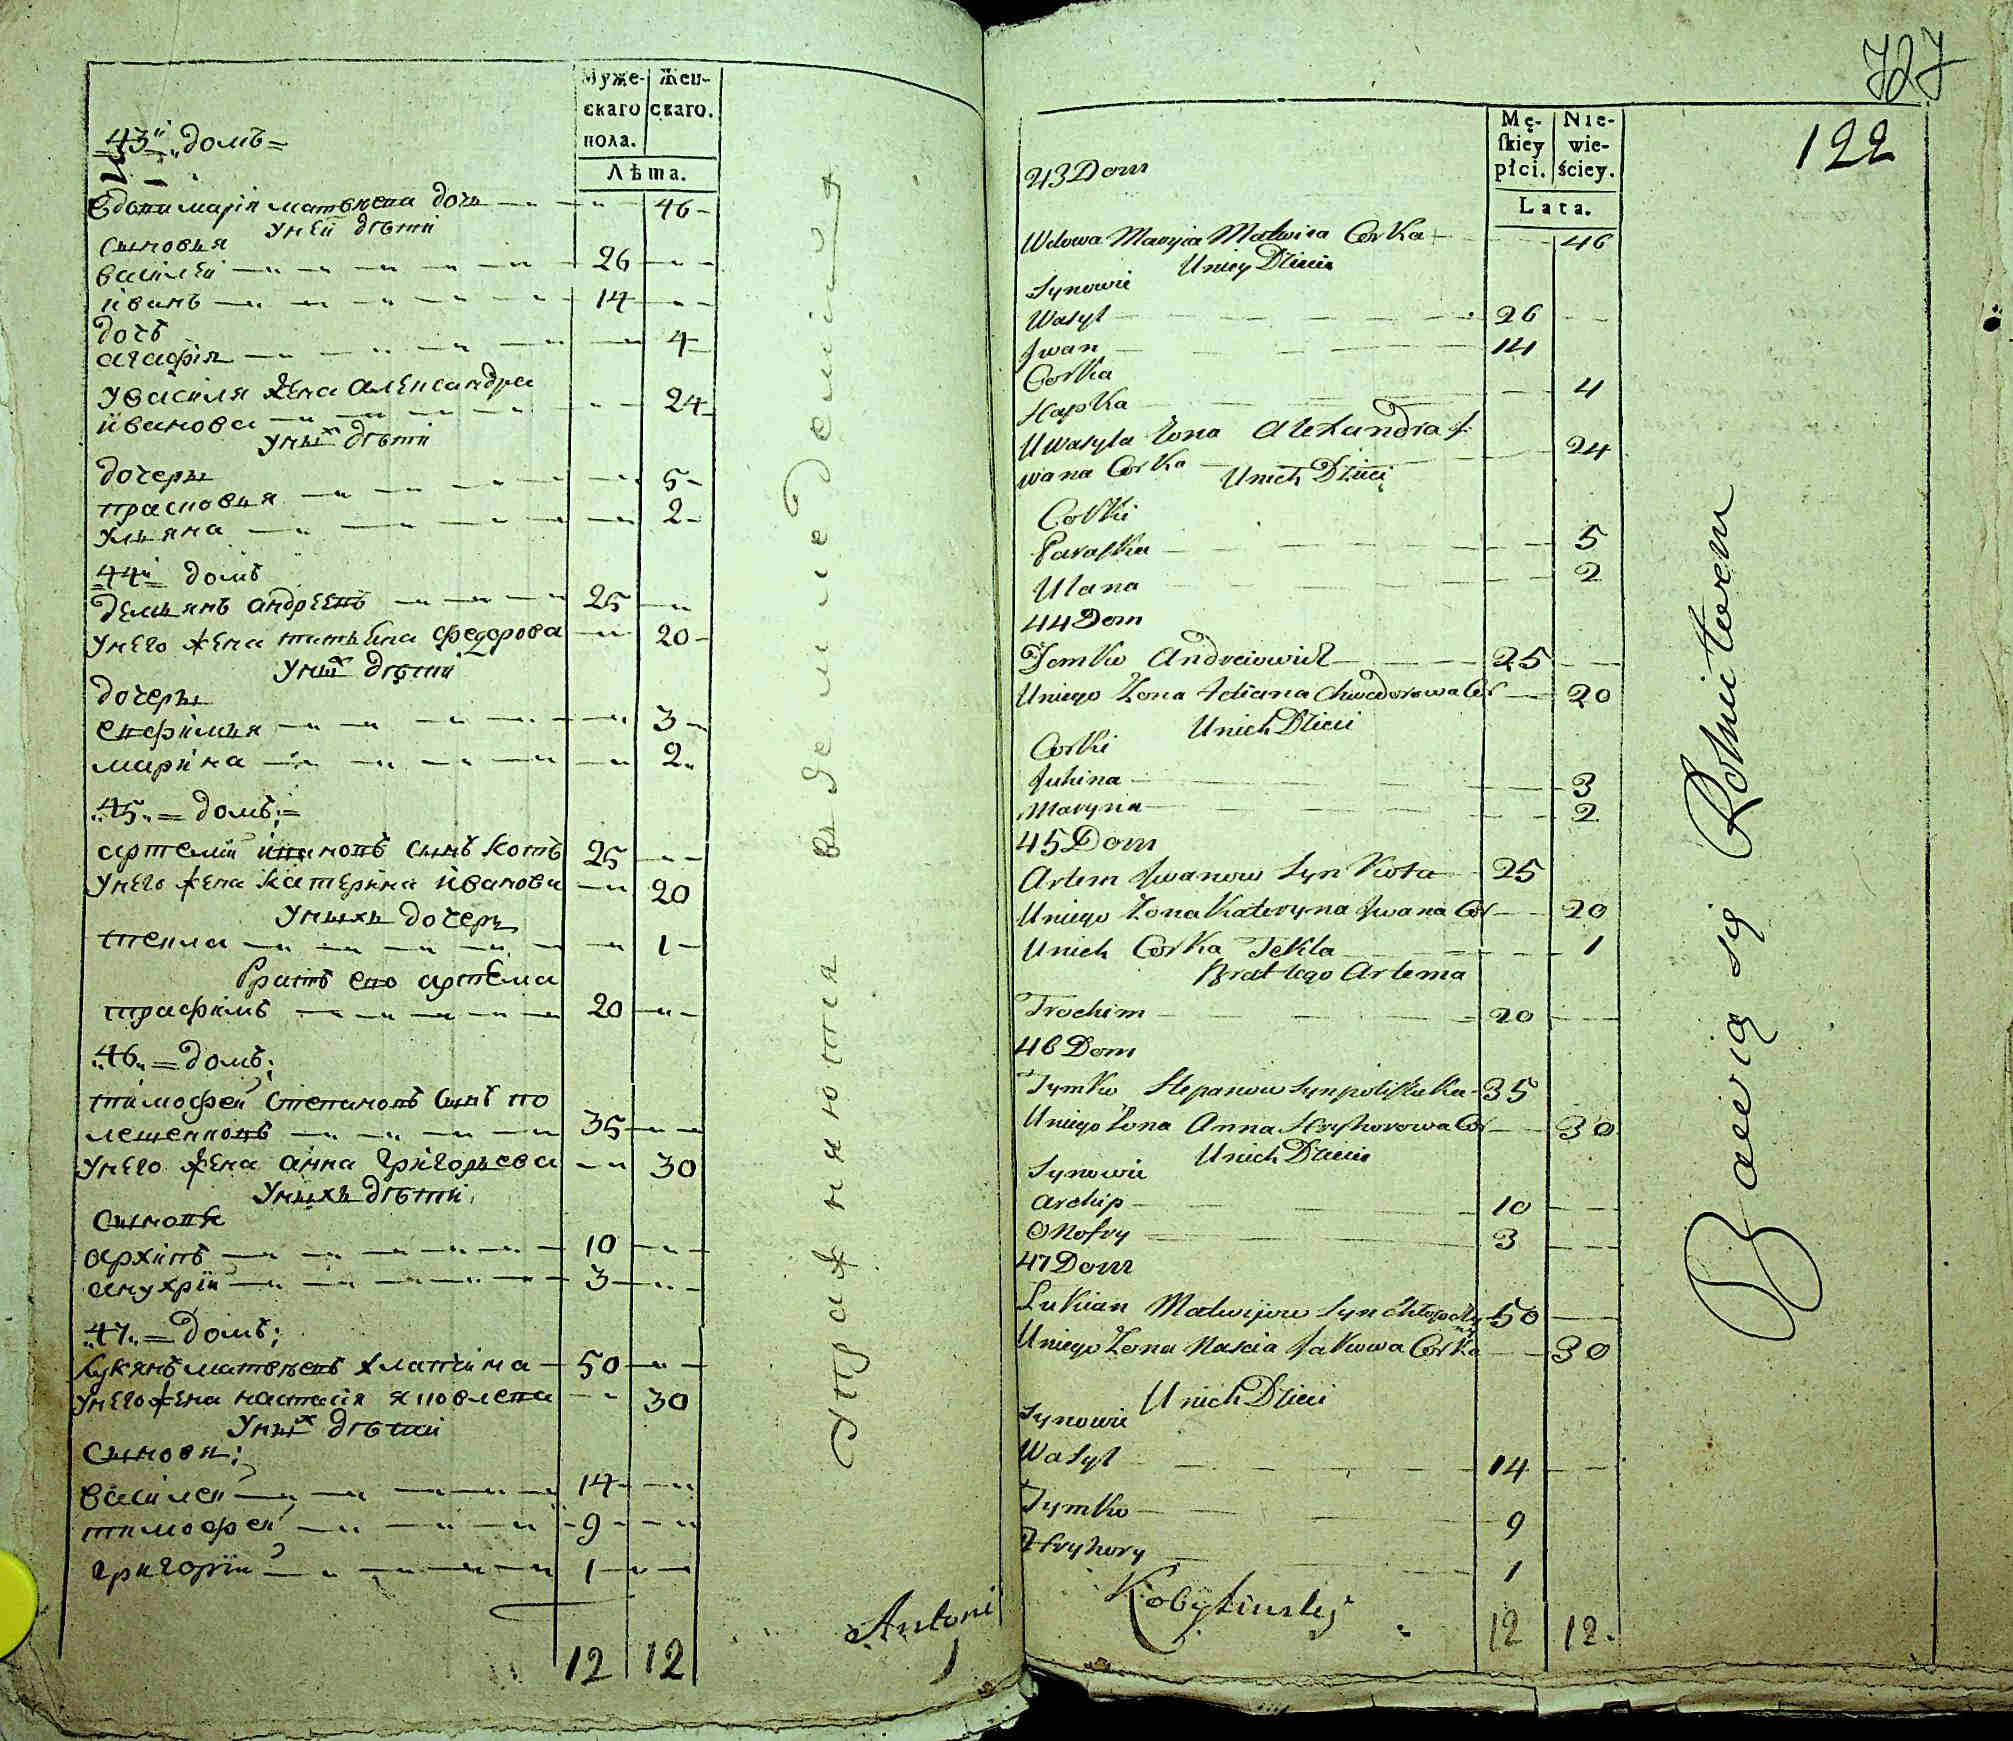 Муже-
скаго
пола.
Жен-
скаго.
Лѣта.
43й домъ
Вдови марiя матвѣева дочь 46
У неи дѣти
сыновья
василеи 26
иванъ 14
дочь
агафiя 4
У василя жена александра
иванова 24
У них дѣти
дочеры
прасковья 5
ульяна 2
44й домъ
демьянъ андреевъ 25
У него жена татьяна федорова 20
У них дѣти
дочеры
ефимья 3
марина 2
45 домъ;
артемiй ивановъ сынъ котъ 25
У него жена катерина иванова 20
У ныхъ дочеръ
текла 1
братъ его артема
трафимъ 20
46 домъ;
тимофей степановъ сынъ по
лешенковъ 35
У него жена анна григорьева 30
У ныхъ дѣти
сыновя
архипъ 10
анухрiй 3
47 домъ;
лукянъ матвѣевъ 50
У него жена настасiя яковлева 30
У них дѣти
сыновя;
василей 14
тимофей 9
григорiй 1
12 12
Упражняются въ земледелiи
Antoni
727
122
Mę-
ſkiey
płci.
Nie-
wie-
ściey.
Lata.
43 Dom
Wdowa Maryia Matwiia Corka 46
U niey Dzieci
Synowie
Wasyl 26
Jwan 14
Corka
Hapka 4
U Wasyla Żona Alexandra J
wana Corka 24
U nich Dzieci
Corki
Paraſka 5
Ulana 2
44 Dom
Demko Andreiowicz 25
U niego Żona Chwedorowa Cor 20
U nich Dzieci
Corki
Juhina 3
Maryna 2
45 Dom
Artem Jwanow Syn Kota 25
U niego Żona Kateryna Jwana Cor 20
U nich Corka Tekla 1
Brat tego Artema
Trochim 20
46 Dom
Tymko Stepanow Syn 35
U niego Żona Anna Hryhorowa Cor 30
U nich Dzieci
Synowie
Archip 10
Onofry 3
47 Dom
Lukian Matwijow Syn 50
U niego Żona Nascia Jakowa Corka 30
U nich Dzieci
Synowie
Wasyl 14
Tymko 9
Hryhory 1
Kobylinsky
12 12
Bawią się Rolnictwem